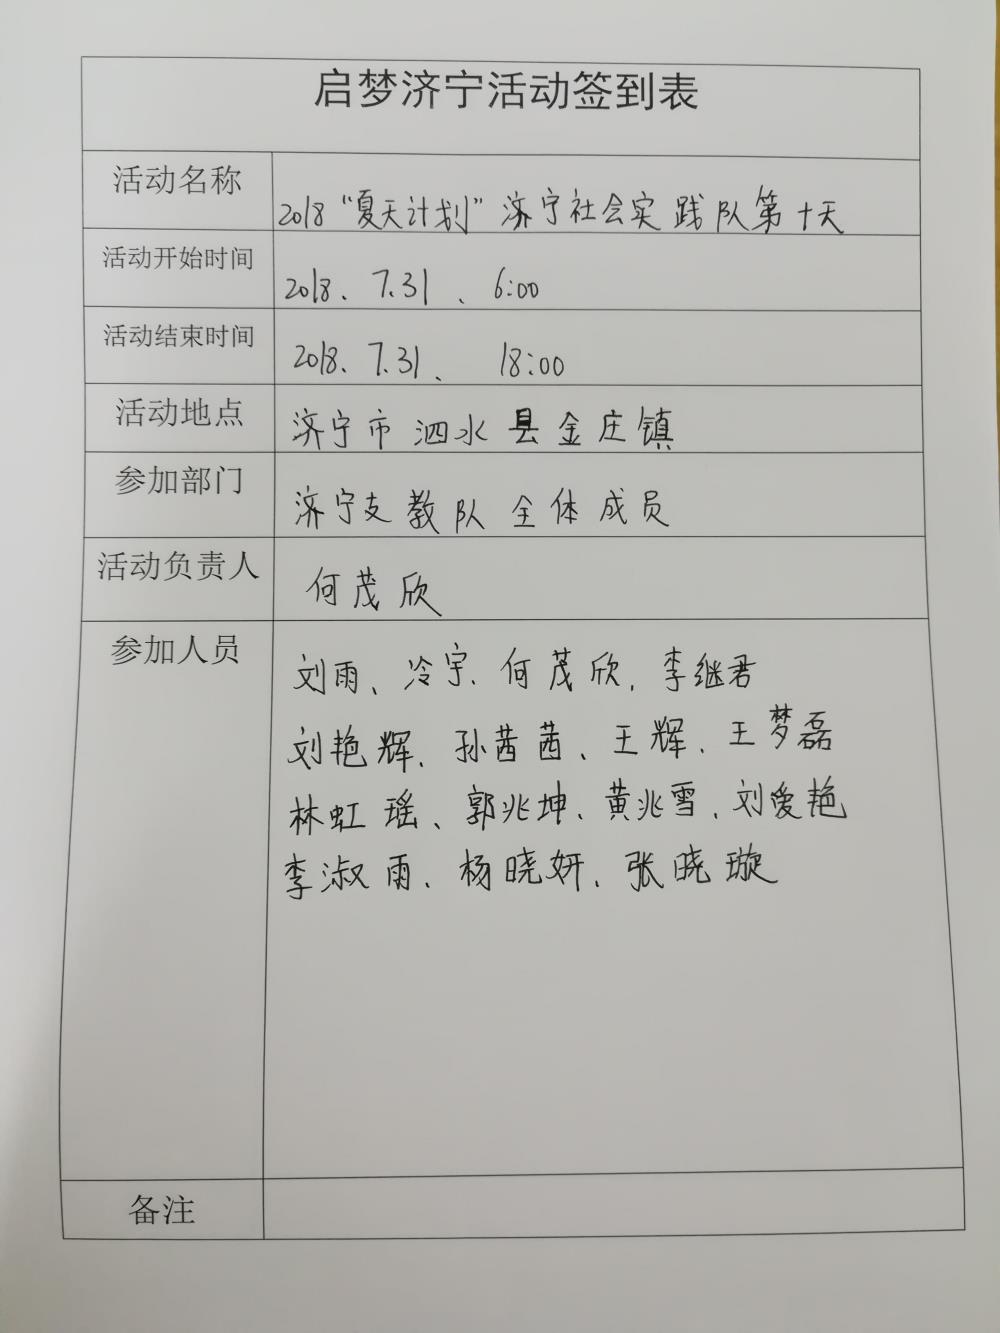 启梦济宁活动签到表
活动名称 2018“夏天计划”济宁社会实践队第十天
活动开始时间 2018、7.31、6:00
活动结束时间 2018、7.31、18:00
活动地点 济宁市泗水县金庄镇
参加部门 济宁支教队全体成员
活动负责人 何茂欣
参加人员 刘雨、冷宇、何茂欣、李继君
刘艳辉、孙茜茜、王辉、王梦磊
林虹瑶、郭兆坤、黄兆雪、刘爱艳
李淑雨、杨晓妍、张晓璇
备注